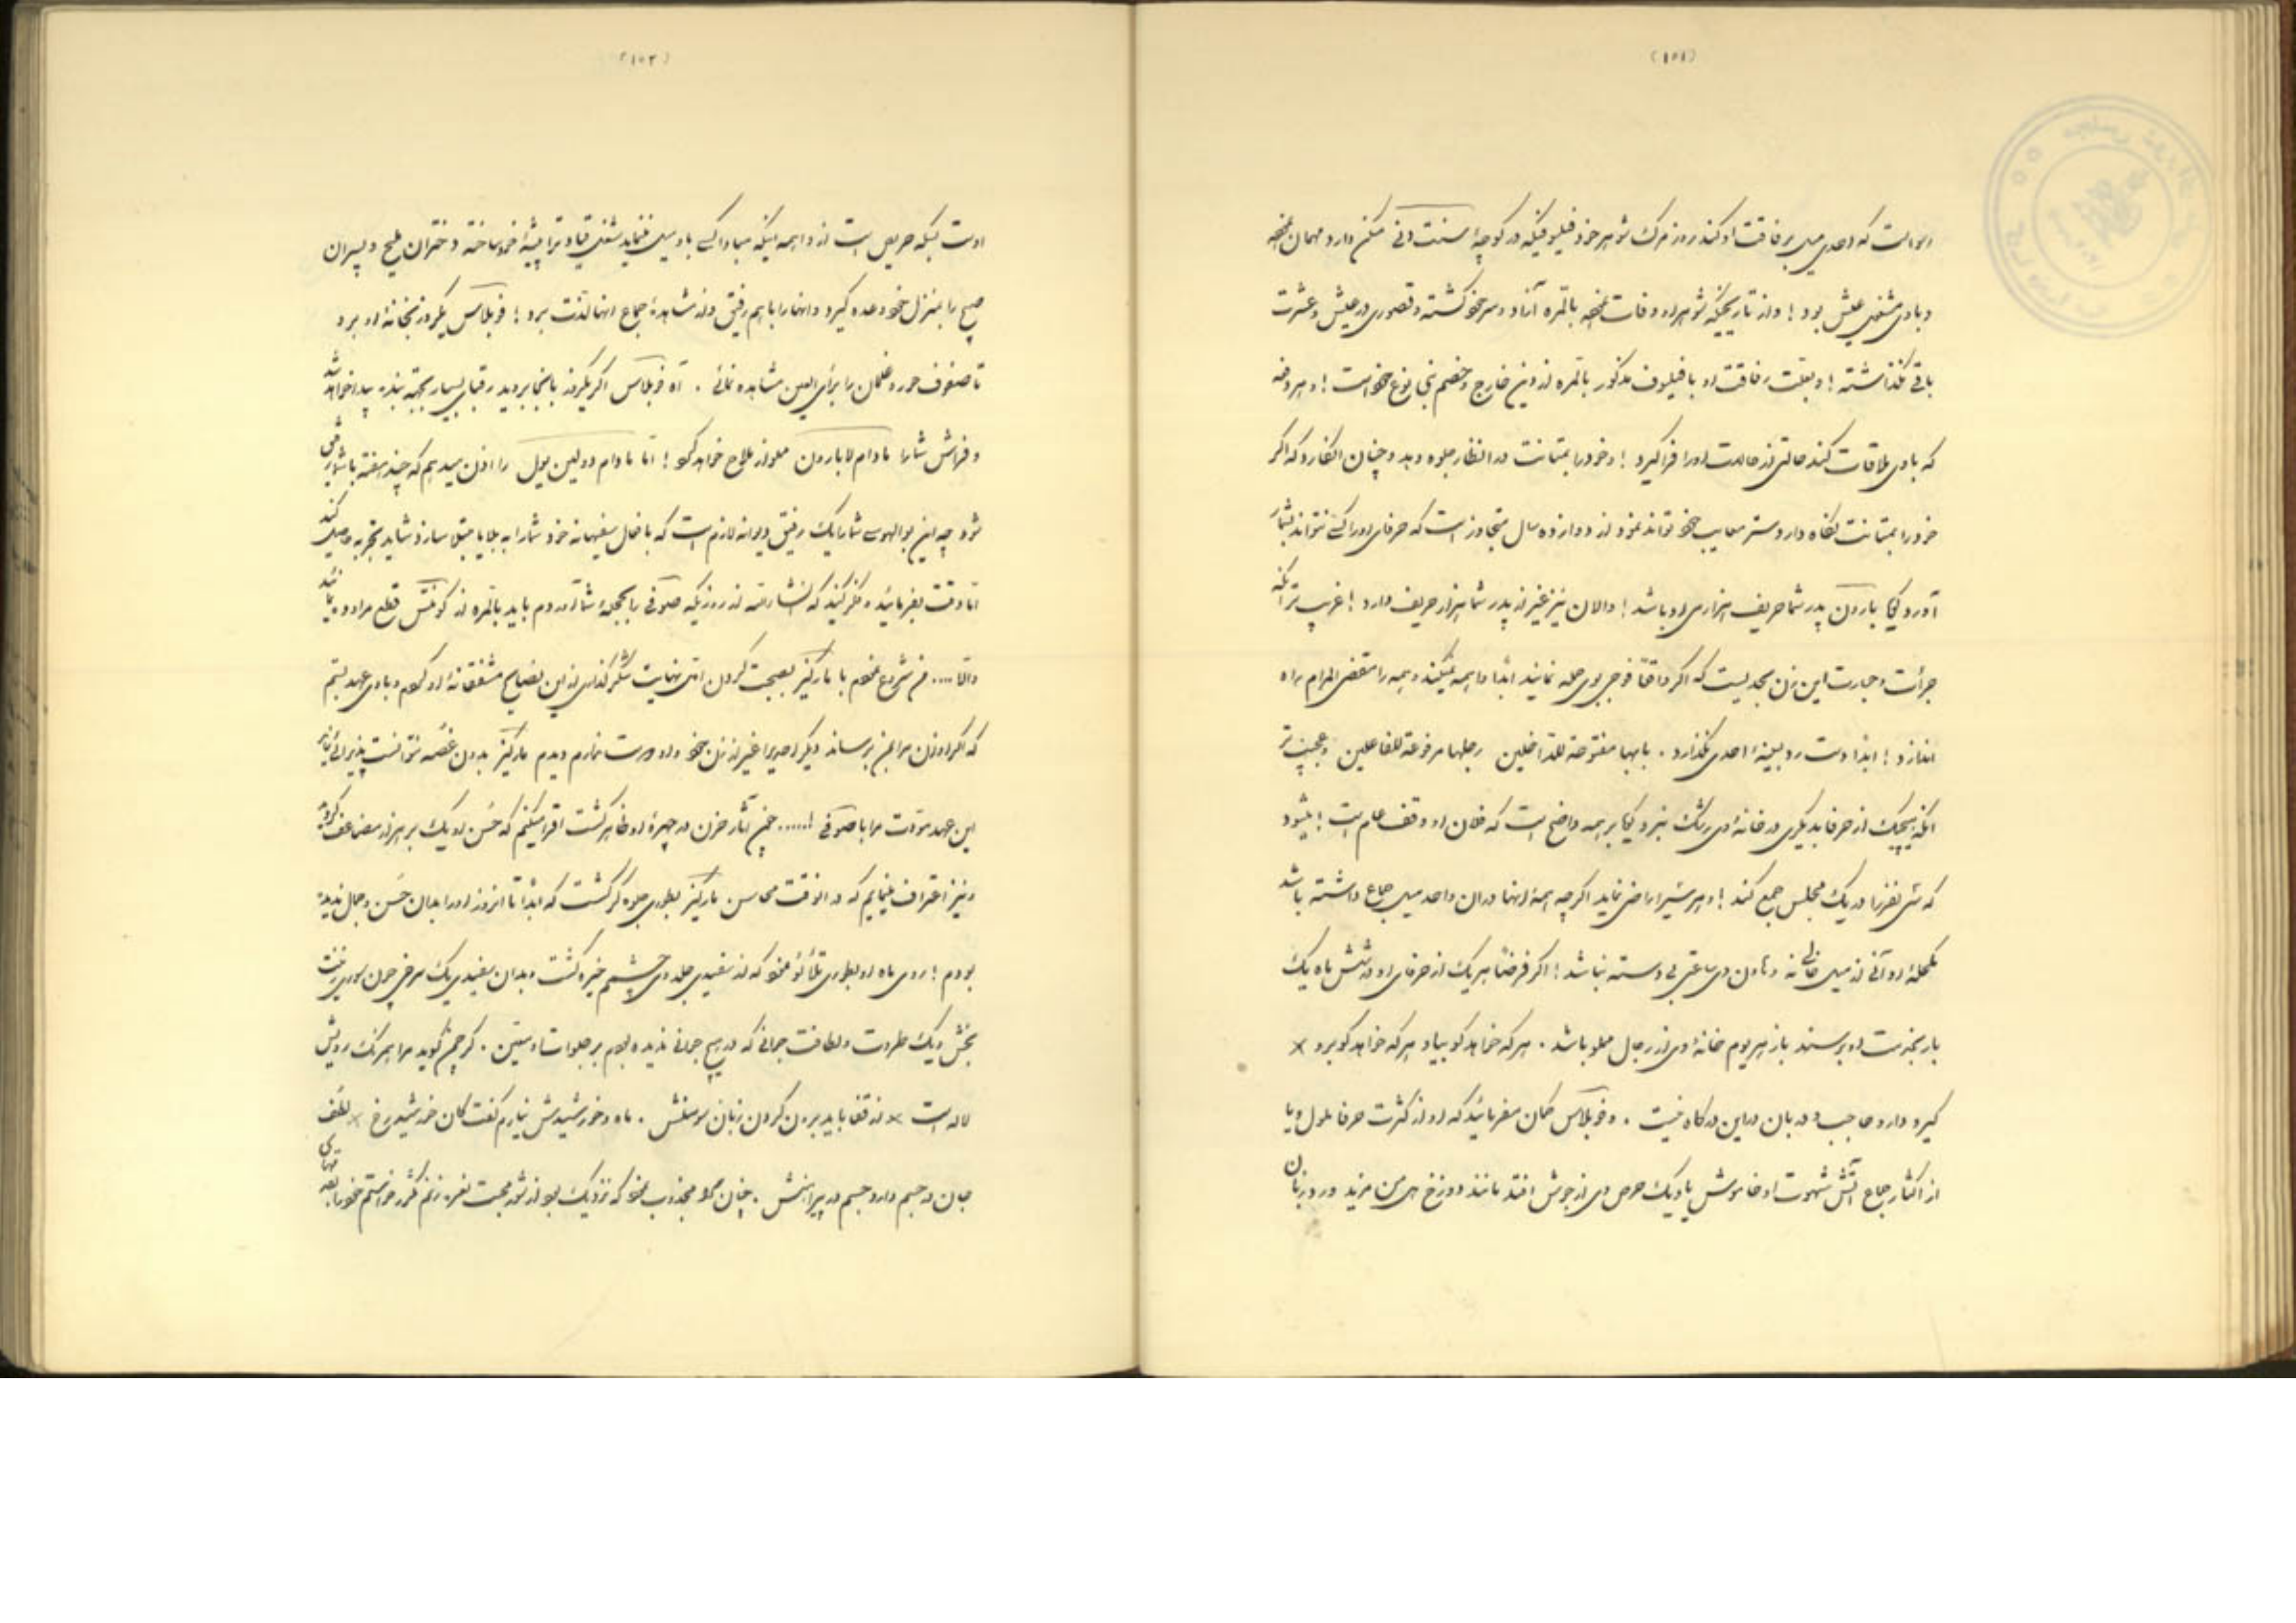 (۱۵۱)
که احدی میل برفاقت او کند روز مرک شوهر خود فیلسوفیکه در کوچهٔ سنت مکن دارد مهمان
و با وی مشغول عیش بود ! و از تاریخیکه شوهر او وفات بالمره آزاد و سر خود کشته و قصوری در عیش و عشرت
باقی نکذاشته ! و بعلت رفاقت او با فیلسوف مذکور بالمره از دین خارج و خصم بنی نوع خود است ! و هر دفعه
که با وی ملاقات کند حالتی از حالات او را فرا کیرد ! و خود را بمتانت در انظار جلوه دهد و چنان انکارد که اکر
خود را بمتانت نکاه دارد ستر معایب خود تواند نمود از دوازده سال متجاوز است که حرفای او را کسی نتواند بشمار
آورد کویا بارون پدر شما حریف هزارمی او باشد ! و الان نیز غیر از پدر شما هزار حریف دارد ! غریب تر آنکه
جرأت و جسارت این زن بحدیست که اکر واقعاً فوجی بوی حمله نمایند ابداً واهمه نمیکند و همه را مقضی المرام براه
اندازد ! ابدا دست رد بسینهٔ احدی نکذارد . بابها مفتوحة للداخلین رجلها مرفوعة للفاعلین و عجیب تر
آنکه هیچیک از حرفا بدیکری در خانهٔ وی رشک نبرد کویا بر همه واضح است که فلان او وقف عام است ! میشود
که سی نفر را در یک مجلس جمع کند ! و هر سی را راضی نماید اکر چه همهٔ آنها در آن واحد میل جماع داشته باشد
مکحلهٔ او آنی از میل خالی نه و هاون وی ساعتی بی دسته نباشد ! اکر فرضاً هر یک از حرفای او در شش ماه یک
بار بخدمت او برسند باز هر یوم خانهٔ وی از رجال مملو باشد . هر که خواهد کو بیا و هر که خواهد کو برو ×
کیر و دار و حاجب و دربان در این درکاه نیست . و فوبلاس کمان مفرمائید که او از کثرت حرفا ملول و یا
از اکثار جماع آتش شهوت او خاموش یا دیک حرص وی از جوش افتد مانند دوزخ هل من مزید ورد زبان
(۱۵۲)
اوست بلکه حریص است از واهمه اینکه مبادا کسی باو میل ننماید شغل قیادت را پیشهٔ خود ساخته دختران ملیح و پسران
صبیح را بمنزل خود وعده کیرد و آنها را باهم رفیق و از مشاهدهٔ جماع آنها لذت برد ! فوبلاس یکروز بخانهٔ او برو
تا صفوف حور و غلمان را برأی العین مشاهده نمائی . آه فوبلاس اکر یکروز بآنجا بروید رقبای بسیار بجهة بنده پیدا خواهد شد
و فراش شما را مادام لابارون مملو از ملاح خواهد کرد ! اما مادام دولین یول را اذن میدهم که چند هفته با شما رفیق
شود چه این بوالهوسی شما را یک رفیق دیوانه لازم است که با افعال سفیهانه خود شما را به بلایا مبتلا سازد شاید تجربه حاصل کنید
اما دقت بفرمائید و فکر کنید که انشاءالله از روزیکه صوفی را بحجلهٔ شما آوردم باید بالمره از کونتس قطع مراوده نمائید
والا .... من شروع نمودم با مارکیز بصحبت کردن اتنی نهایت شکر کذاری از این نصایح مشفقانهٔ او کردم و با وی عهد بستم
که اکر او زن مرا بمن برساند دیکر احدیرا غیر از زن خود و او دوست ندارم دیدم مارکیز بدون غصه نتوانست پذیرائی نماید
این عهد مودت مرا با صوفی !..... چون آثار حزن در چهرهٔ او ظاهر کشت اقرار میکنم که حسن او یک بر هزار مضاعف کردید
و نیز اعتراف مینمایم که در آنوقت محاسن مارکیز بطوری جلوه کر کشت که ابدا تا انروز او را بدان حسن و جمال ندیده
بودم ! روی ماه او بطوری تلألؤ نمود که از سفیدی جلد وی چشم خیره کشت و بدان سفیدی یک سرخی چون
بخش و یک طراوت و لطافت جوانی که در هیچ جوانی ندیده بودم بر جلو انداخته . کر چمن کوید مرا همرنک رویش
لاله است × از قفا باید برون کردن زبان سوسنش . ماه و خورشیدش نیارم کفت کان خورشید رخ × لطف
جان در جسم دارد جسم در پیراهنش . چنان مجذوب نمود که نزدیک بود از شور محبت نعره زنم خواستم خود را بقدمهای